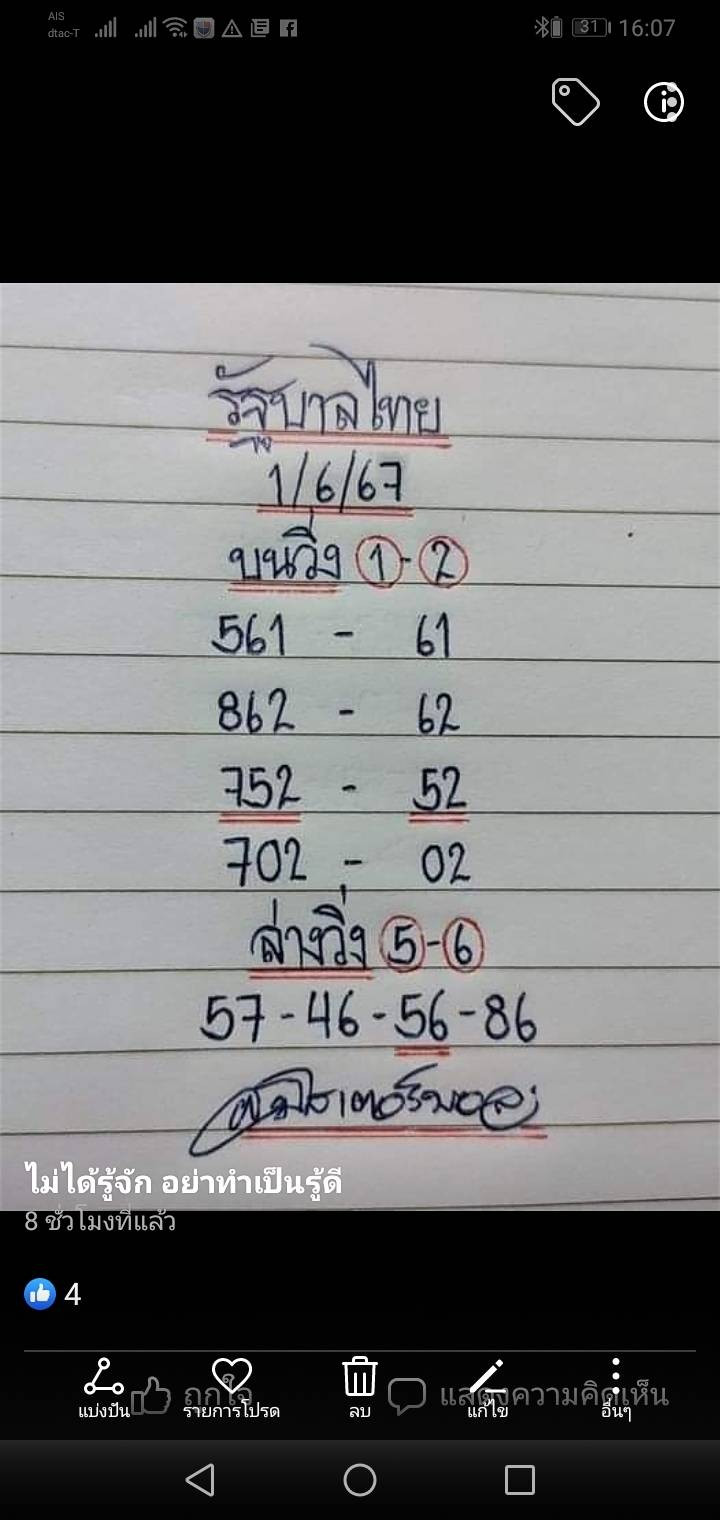 AIS
dtac-T
31
16:07
รัฐบาลไทย
1/6/67
บนวิ่ง 1-2
561 - 61
862 - 62
752 - 52
702 - 02
ล่างวิ่ง 5-6
57-46-56-86
ไม่ได้รู้จัก อย่าทำเป็นรู้ดี
8 ชั่วโมงที่แล้ว
4
ถูกใจ
แสดงความคิดเห็น
แบ่งปัน
รายการโปรด
ลบ
แก้ไข
อื่นๆ